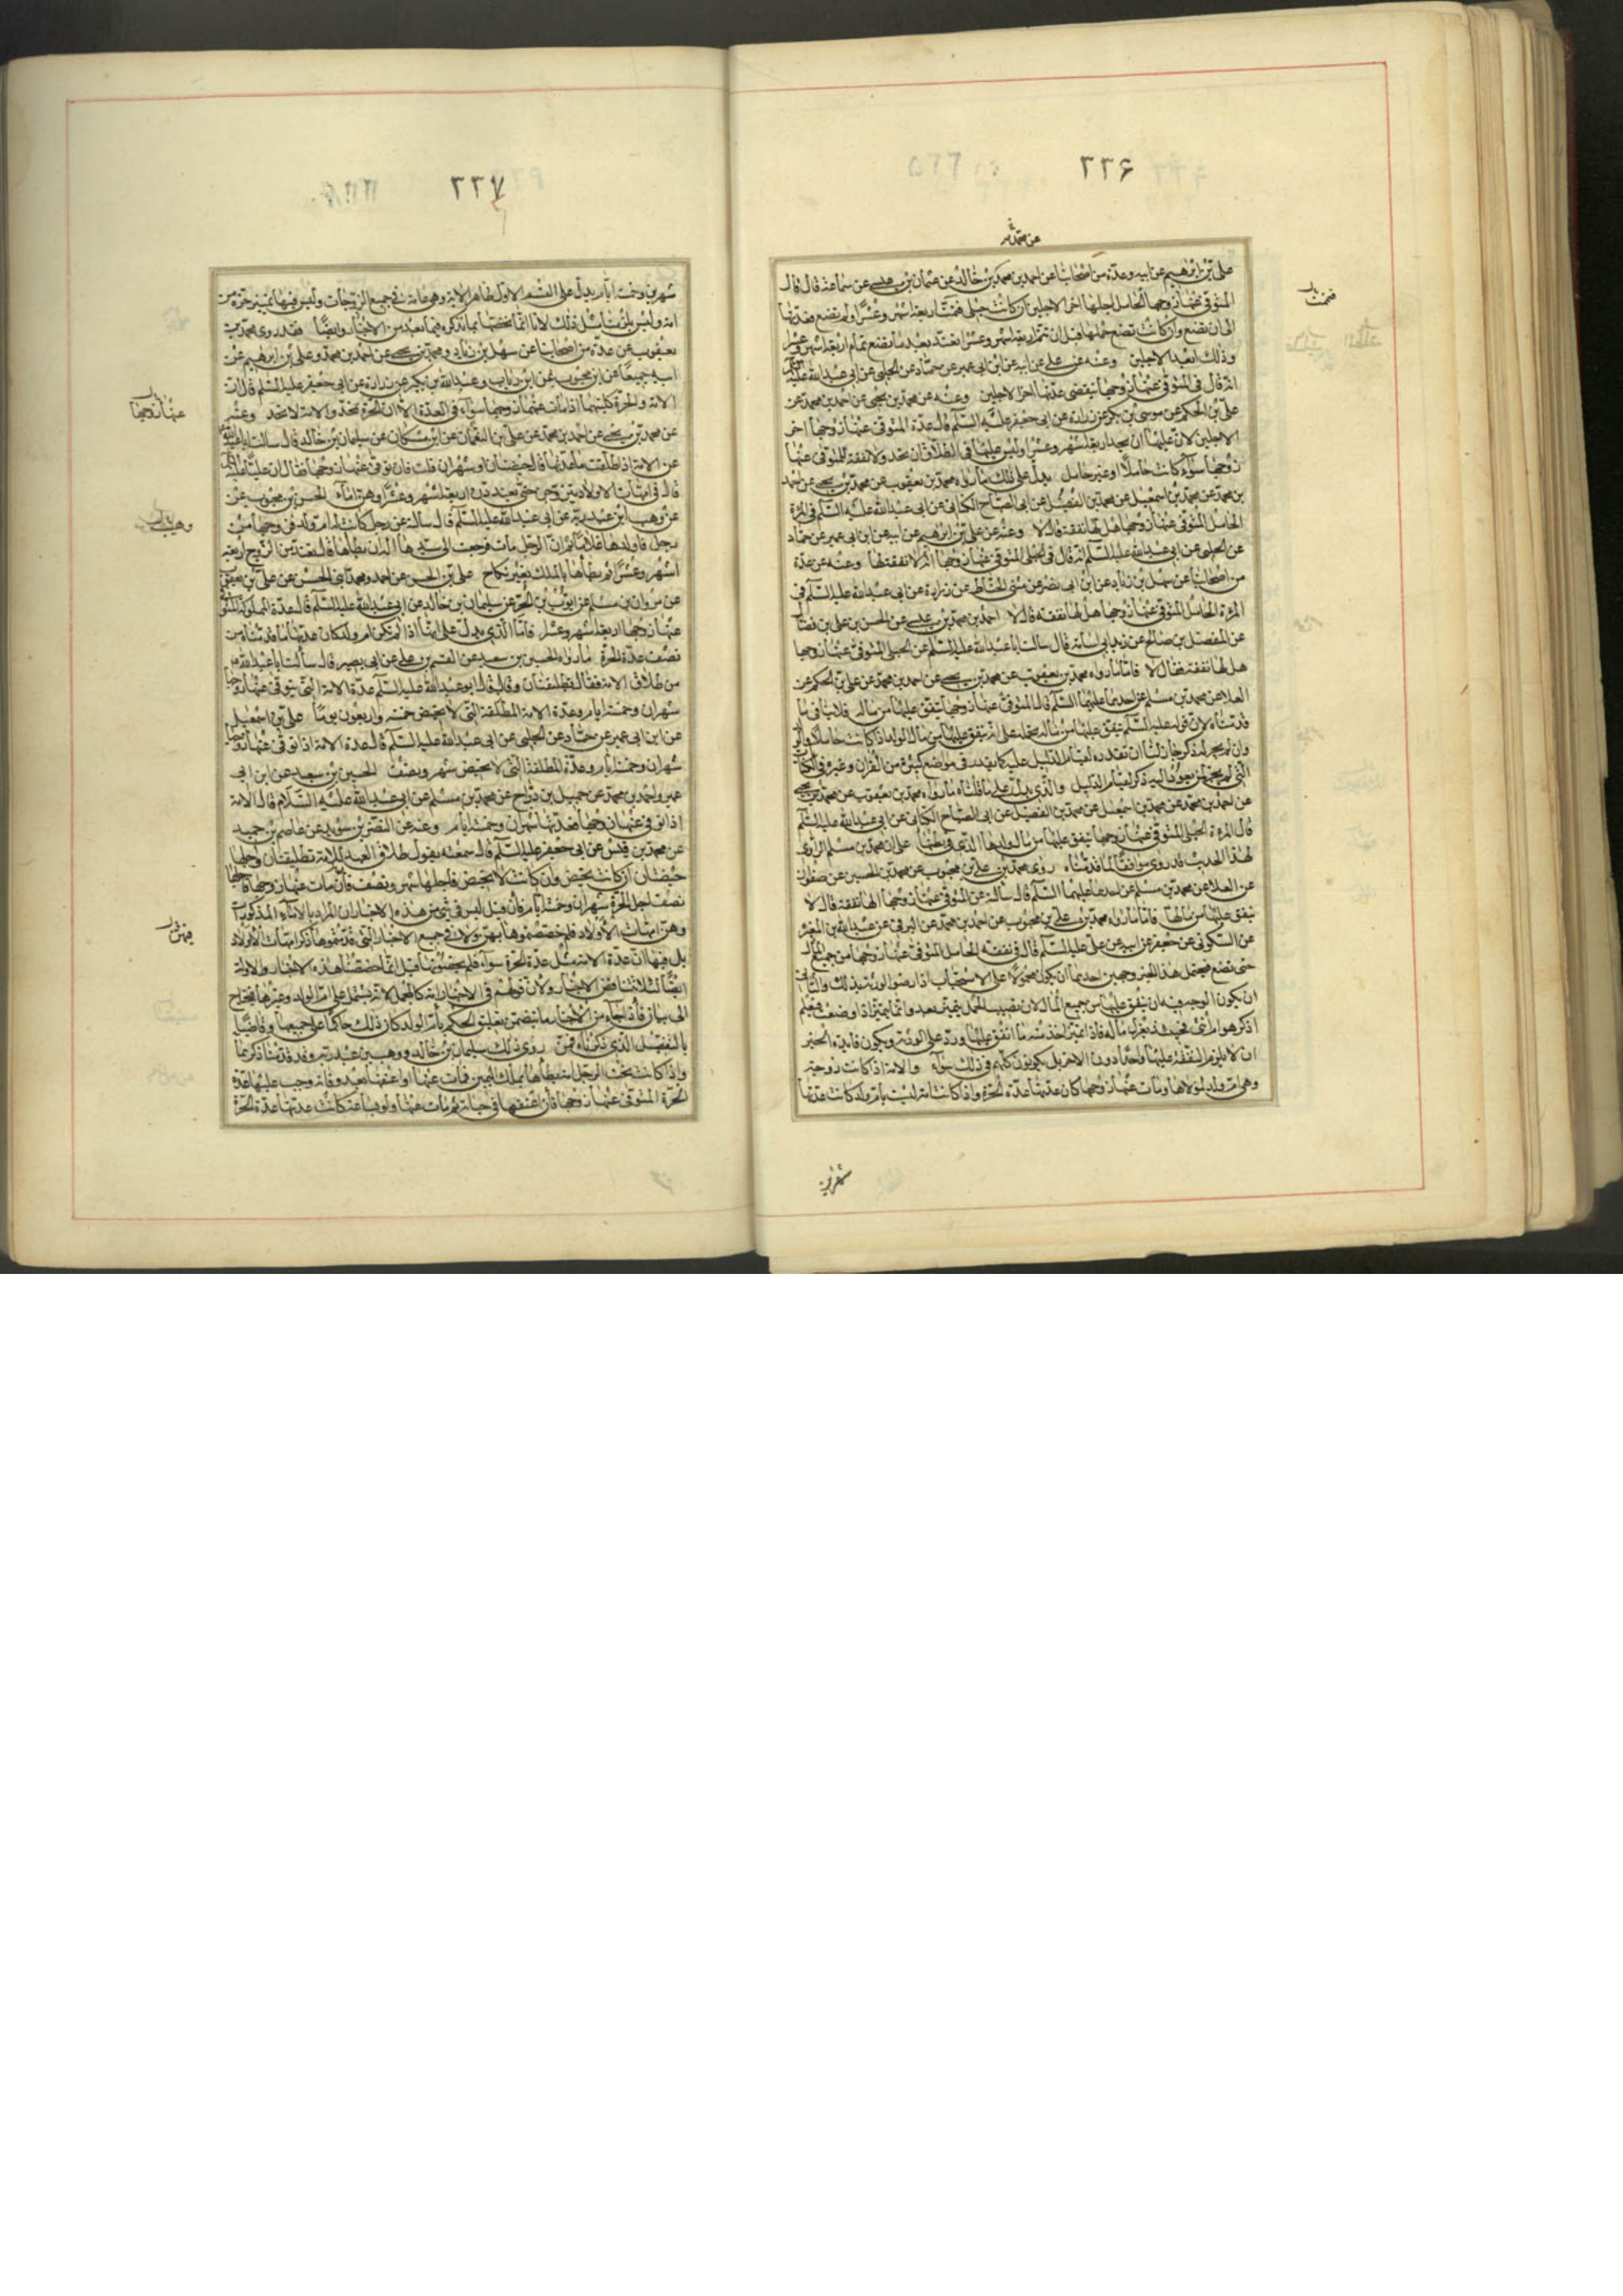 ٢٢۶
عن محمد
علي بن ابرهيم عن ابيه وعدة من اصحابنا عن احمد بن محمد بن خالد عن عثمان بن عيسى عن سماعة قال قال
المتوفى عنها زوجها الحامل اجلها اخر الاجلين ان كانت حبلى فتمت لها اربعة اشهر وعشرا ولم تضع فعدتها
الى ان تضع وان كانت تضع حملها قبل ان تتم اربعة اشهر وعشرا تعتد بعد ما تضع تمام اربعة اشهر وعشرا
وذلك ابعد الاجلين وعنه عن علي عن ابيه عن ابن ابي عمير عن حماد عن الحلبي عن ابي عبد الله عليه
انه قال في المتوفى عنها زوجها تنقضي عدتها اخر الاجلين وعنه عن محمد بن يحيى عن احمد بن محمد عن
علي بن الحكم عن موسى بن بكر عن زرارة عن ابي جعفر عليه السلم قال عدة المتوفى عنها زوجها اخر
الاجلين لان عليها ان تحد اربعة اشهر وعشرا وليس عليها في الطلاق ان تحد ولا نفقة للمتوفى عنها
زوجها سواء كانت حاملا او غير حامل يدل على ذلك ما رواه محمد بن يعقوب عن محمد بن يحيى عن احمد
بن محمد عن محمد بن اسمعيل عن محمد بن الفضيل عن ابي الصباح الكناني عن ابي عبد الله عليه السلم في المرءة
الحامل المتوفى عنها زوجها هل لها نفقة قال لا وعنه عن علي بن ابرهيم عن ابيه عن ابن ابي عمير عن حماد
عن الحلبي عن ابي عبد الله عليه السلم انه قال في الحبلى المتوفى عنها زوجها انه لا نفقة لها وعنه عن عدة
من اصحابنا عن سهل بن زياد عن ابن ابي نصر عن مثنى الحناط عن زرارة عن ابي عبد الله عليه السلم في
المرءة الحامل المتوفى عنها زوجها هل لها نفقة قال لا احمد بن محمد بن عيسى عن الحسن بن علي بن فضال
عن المفضل بن صالح عن زيد ابي اسامة قال سالت ابا عبد الله عليه السلم عن الحبلى المتوفى عنها زوجها
هل لها نفقة فقال لا فاما ما رواه محمد بن يعقوب عن محمد بن يحيى عن احمد بن محمد عن علي بن الحكم عن
العلا عن محمد بن مسلم عن احدهما عليهما السلم قال المتوفى عنها زوجها ينفق عليها من ماله فلا ينافي ما
قدمناه لان قوله عليه السلم ينفق عليها من ماله نحمله على انه ينفق عليها من مال الولد اذا كانت حاملا والولد
وان لم يجر له ذكر جاز لنا ان نقدره لقيام الدليل عليه كما يقدر في مواضع كثيرة من القران وغيره في الكتاب
والذي يدل على ما قلناه ما رواه محمد بن يعقوب عن محمد بن يحيى
عن احمد بن محمد عن محمد بن اسمعيل عن محمد بن الفضيل عن ابي الصباح الكناني عن ابي عبد الله عليه السلم
قال المرءة الحبلى المتوفى عنها زوجها ينفق عليها من مال ولدها الذي في بطنها على ان محمد بن مسلم الراوي
لهذا الحديث قد روى موافقا لما قدمناه روى محمد بن علي بن محبوب عن محمد بن الحسين عن صفوان
عن العلا عن محمد بن مسلم عن احدهما عليهما السلم قال سالته عن المتوفى عنها زوجها الها نفقة قال لا
ينفق عليها من مالها فاما ما رواه محمد بن علي بن محبوب عن احمد بن محمد عن البرقي عن عبد الله بن المغيرة
عن السكوني عن جعفر عن ابيه عن علي عليه السلم قال في نفقة الحامل المتوفى عنها زوجها من جميع المال
حتى تضع فيحتمل هذا الخبر وجهين احدهما ان يكون محمولا على الاستحباب اذا رضوا الورثة بذلك والثاني
ان يكون الوجه فيه ان ينفق عليها من جميع المال لان نصيب الحمل لم يتميز بعد وانما يتميز اذا وضعت فيعلم
اذكر هو ام انثى فحينئذ يعزل ماله فاذا تميز اخذ منه ما انفق عليها ورد على الورثة ويكون فايدة الخبر
ان لا يلزم النفقة عليها واحدا دون الاخر بل يكونون كلهم في ذلك سواء والامة اذا كانت زوجة
وهي ام ولد لمولاها ومات عنها زوجها كان عدتها عدة الحرة واذا كانت امة ليست بام ولد كانت عدتها
شهرين
فتمت
٢٢٧
شهرين وخمسة ايام يدل على القسم الاول ظاهر الاية وهي عامة في جميع الزوجات وليس فيها تمييز حرة من
امة وليس يلزمنا مثل ذلك لانا انما نخصها بما نذكره فيما بعد من الاخبار وايضا فقد روى محمد بن
يعقوب عن عدة من اصحابنا عن سهل بن زياد ومحمد بن يحيى عن احمد بن محمد وعلي بن ابرهيم عن
ابيه جميعا عن ابن محبوب عن ابن رئاب وعبد الله بن بكير عن زرارة عن ابي جعفر عليه السلم قال ان
الامة والحرة كلتيهما اذا مات عنهما زوجهما سواء في العدة الا ان الحرة تحد والامة لا تحد وعنه
عن محمد بن يحيى عن احمد بن محمد عن علي بن النعمان عن ابن مسكان عن سليمان بن خالد قال سالت ابا عبد الله
عن الامة اذا طلقت ما عدتها قال حيضتان او شهران قلت فان توفى عنها زوجها فقال ان عليا عليه
قال في امهات الاولاد لا يتزوجن حتى يعتددن اربعة اشهر وعشرا وهن اماء الحسن بن محبوب عن
عن وهب ابن عبد ربه عن ابي عبد الله عليه السلم قال سالته عن رجل كانت له ام ولد فزوجها من
رجل فاولدها غلاما ثم ان الرجل مات فرجعت الى سيدها اله ان يطأها قال تعتد من الزوج اربعة
اشهر وعشرا ثم يطأها بالملك بغير نكاح علي بن الحسن عن احمد ومحمد ابني الحسن عن علي بن يعقوب
عن مروان بن مسلم عن ايوب بن الحر عن سليمان بن خالد عن ابي عبد الله عليه السلم قال عدة المملوكة المتوفى
عنها زوجها اربعة اشهر وعشرا فاما الذي يدل على انها اذا لم تكن ام ولد كان عدتها ما قدمناه من
نصف عدة الحرة ما رواه الحسين بن سعيد عن القسم بن علي عن ابي بصير قال سألت ابا عبد الله
من طلاق الامة فقال تطليقتان وقال قال ابو عبد الله عليه السلم عدة الامة التي يتوفى عنها زوجها
شهران وخمسة ايام وعدة الامة المطلقة التي لا تحيض خمسة واربعون يوما علي بن اسمعيل
عن ابن ابي عمير عن حماد عن الحلبي عن ابي عبد الله عليه السلم قال عدة الامة اذا توفى عنها زوجها
شهران وخمسة ايام وعدة المطلقة التي لا تحيض شهر ونصف الحسين بن سعيد عن ابن ابي
عمير واحمد بن محمد عن جميل بن دراج عن محمد بن مسلم عن ابي عبد الله عليه السلام قال الامة
اذا توفى عنها زوجها فعدتها شهران وخمسة ايام وعنه عن النضر بن سويد عن عاصم بن حميد
عن محمد بن قيس عن ابي جعفر عليه السلم قال سمعته يقول طلاق العبد للامة تطليقتان واجلها
حيضتان ان كانت تحيض وان كانت لا تحيض فاجلها شهر ونصف فان مات عنها زوجها فاجلها
نصف اجل الحرة شهران وخمسة ايام فان قيل ليس في شئ من هذه الاخبار ان المراد بالاماء المذكورات
وهن امهات الاولاد فلم خصصتموها بهن ولان في جميع الاخبار التي قدمتموها ذكر امهات الاولاد
بل فيها ان عدة الامة مثل عدة الحرة سواء فلم يخصونها قيل انما خصصنا هذه الاخبار والاولة
ايضا لئلا تتناقض الاخبار ولان قولهم في الاخبار امة كالمجمل لانه يشتمل على ام الولد وغيرها فيحتاج
الى بيان فاذا جاء من الاخبار ما يتضمن تعليق الحكم بام الولد كان ذلك حاكما على جميعها وقاضيا
بالتفصيل الذي ذكرناه فمن روى ذلك سليمان بن خالد ووهب بن عبد ربه وقد قدمنا ذكرهما
واذا كانت تحت الرجل امة يطأها بملك اليمين فمات عنها او اعتقها بعد وفاته وجب عليها عدة
الحرة المتوفى عنها زوجها فان اعتقها في حياته ثم مات عنها ولو بساعة كانت عدتها عدة الحرة
عنها زوجها
وهيب
فمن